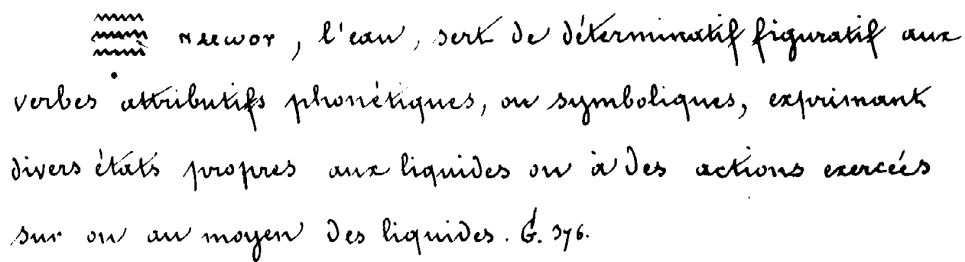 𓈗 ⲙⲉⲱⲟⲩ, l'eau, sert de déterminatif figuratif aux
verbes attributifs phonétiques, ou symboliques, exprimant
divers états propres aux liquides ou à des actions exercées
sur ou au moyen des liquides. G. 376.